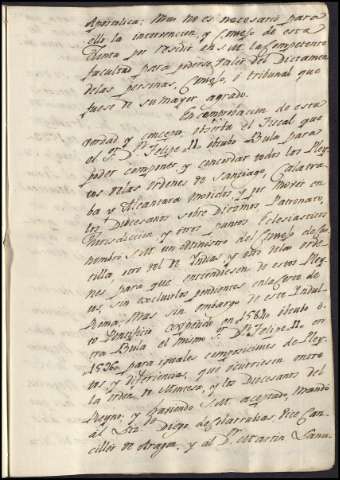 Apostolica: Mas no es necesario para
ello la intervencion, y Consejo de esta
Junta por residir en S.M. la competente
facultad para poderse valer del Dictamen
de las personas, Consejo, ó tribunal que
fuese de su mayor agrado.
En comprobacion de esta
verdad y concepto, observa el Fiscal que
el S.r D.n Felipe II. obtubo Bula para
poder componer y concordar todos los Pley-
tos de las ordenes de Santiago, Calatra-
ba y Alcantara movidos, y por mover con
los Diocesanos sobre Diezmos, Patronatos,
Jurisdiccion y otros puntos Eclesiasticos
nombró S.M. un Ministro del Consejo de Cas-
tilla, otro del de Indias, y otro de las orde-
nes para que entendiesen de estos Pley-
tos, sin excluir los pendientes en la Corte de
Roma; Mas sin embargo de este Indul-
to Pontificio expedido en 1584 obtubo o-
tra Bula el mismo S.r D.n Felipe II. en
para iguales composiciones de Pley-
tos y diferencias, que ocurriesen entre
la orden de Montesa, y los Diocesanos del
Reyno, y habiendo S.M. aceptado, mandó
al Lic.do Diego de Covarrubias Vice Can-
ciller de Aragon, y al D.r Martin